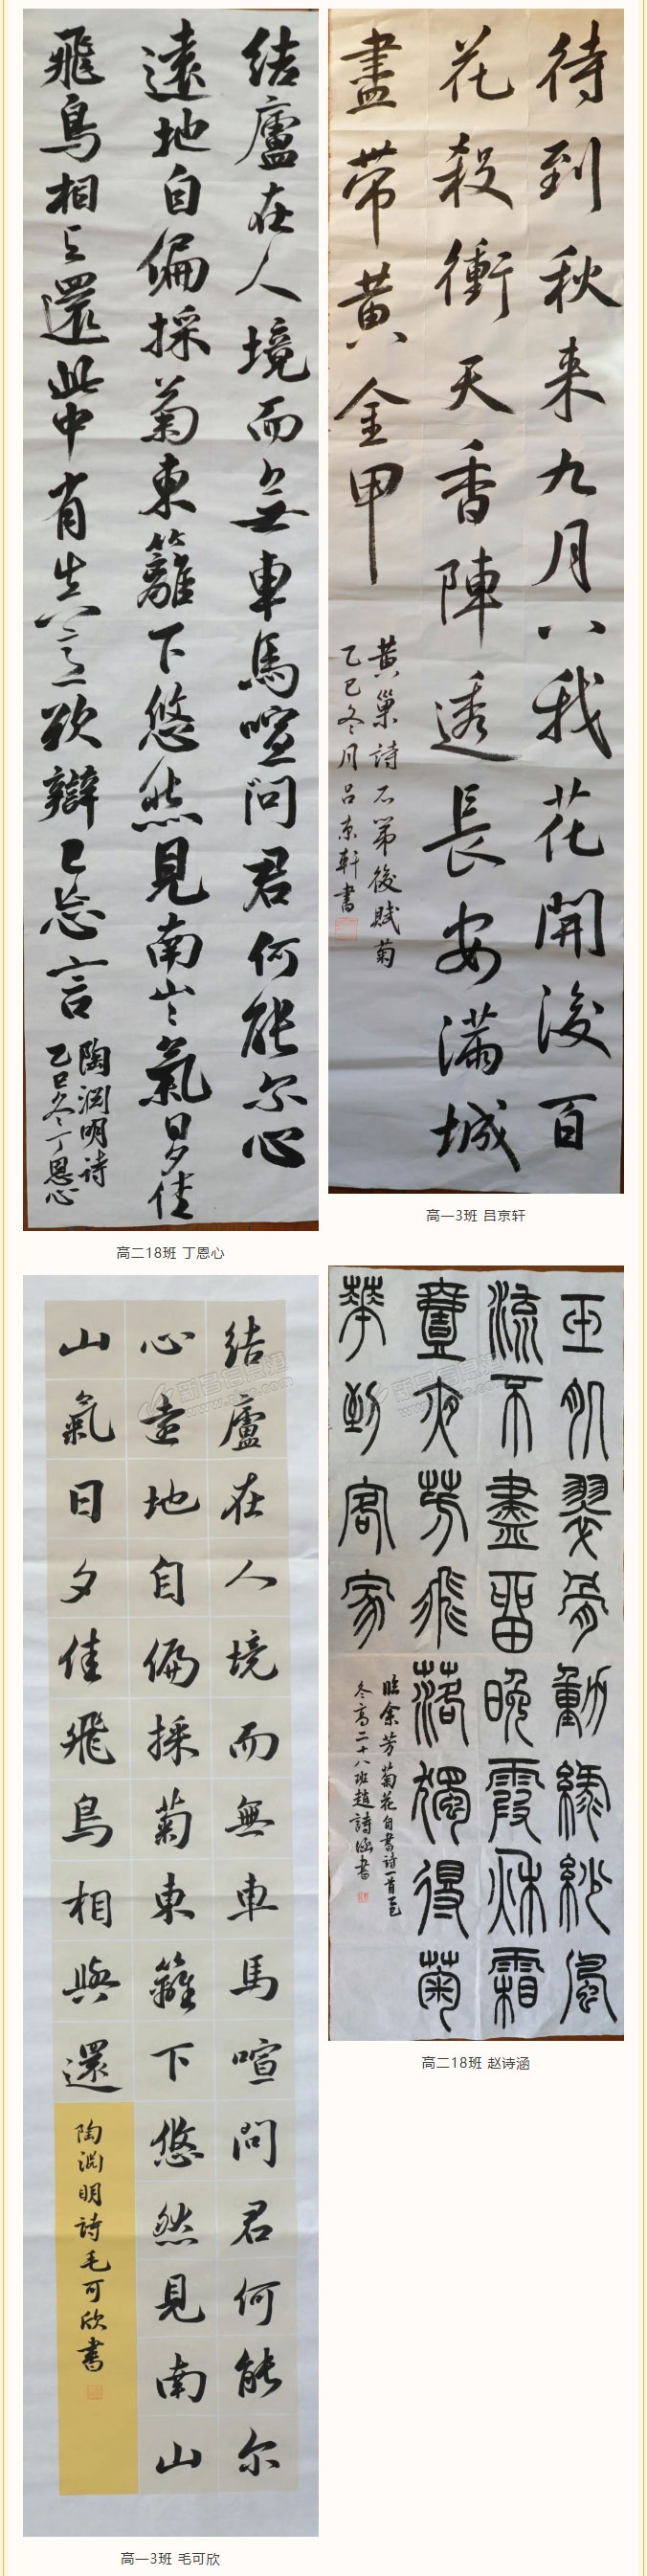 结廬在人境而無車馬喧問君何能尔心
遠地自偏採菊東籬下悠然見南山々氣日夕佳
飛鳥相与還此中有真意欲辯已忘言
陶淵明詩
乙巳冬丁恩心
高二18班 丁恩心
待到秋来九月八我花開後百
花殺衝天香陣透長安滿城
盡带黄金甲
黄巢詩不第後賦菊
乙巳冬月吕京軒書
高一3班 吕京轩
结廬在人境而無車馬喧問君何能尔
心遠地自偏採菊東籬下悠然見南山
山氣日夕佳飛鳥相與還
陶淵明詩毛可欣書
高一3班 毛可欣
玉肌翠骨動縹緲風
流不盡留晚霞秋霜
芳飛落獨得菊
華到客家
臨余芳菊花自書詩一首乙巳
冬高二十八班趙詩涵書
高二18班 赵诗涵